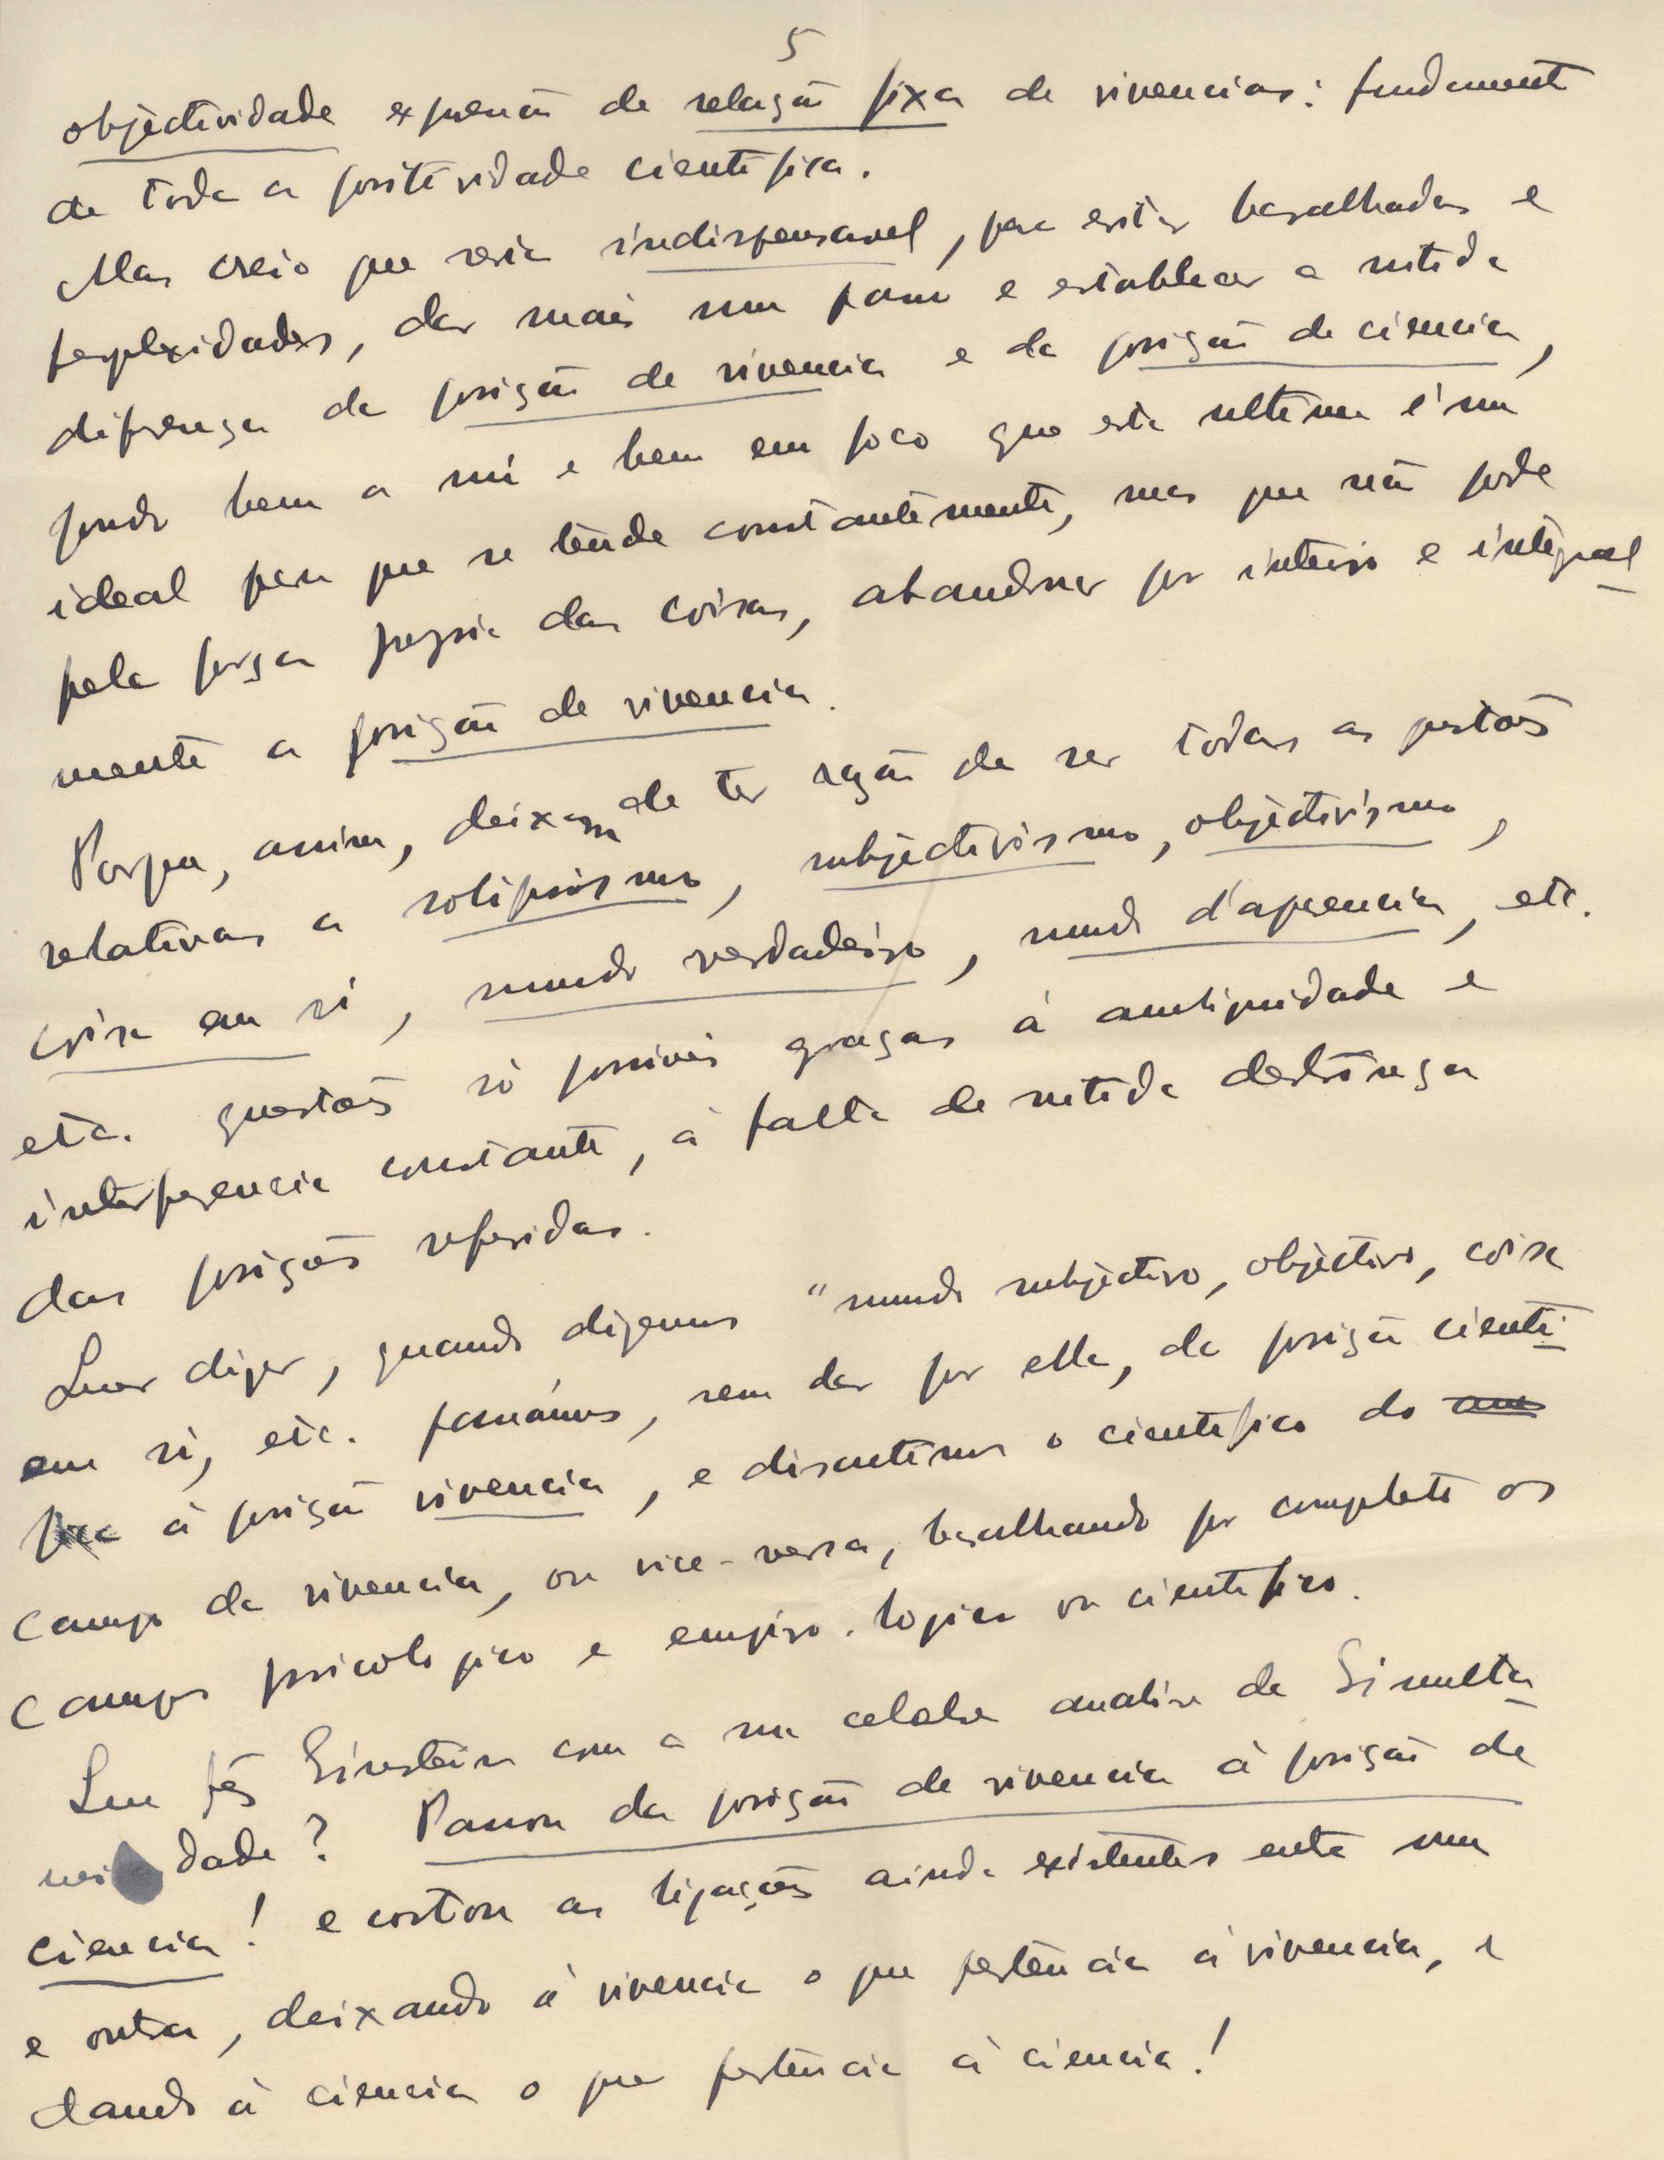 5
objectividade expressão de relação fixa de vivencias: fundamento
de toda a positividade cientifica.
Mas creio que seria indispensavel, para evitar baralhadas e
perplexidades, dar mais um passo e establecer a nitida
diferença da posição de vivencia e da posição de ciencia,
pondo bem a nú e bem em foco que esta ultima é um
ideal para que se tende constantemente, mas que não pode
pela força propria das coisas, abandonar por inteiro e integral
mente a posição de vivencia.
Porque, assim, deixam de ter razão de ser todas as questões
relativas a solipsismo, subjectivismo, objectivismo,
coisa em si, mundo verdadeiro, mundo d'aparencia, etc.
etc. questões só possiveis graças á ambiguidade e
interferencia constante, á falta de nitida destrinça
das posições referidas.
Quer dizer, quando dizemos "mundo subjectivo, objectivo, coisa
em si, etc. passámos, sem dar por ella, da posição cienti-
fica á posição vivencia, e discutimos o cientifico do
campo da vivencia, ou vice-versa, baralhando por completo os
campos psicologico e empiro-logico ou cientifico.
Que fez Einstein com a sua celebre analise da Simulta-
neidade? Passou da posição de vivencia á posição de
ciencia! e cortou as ligações ainda existentes entre uma
e outra, deixando á vivencia o que pertencia á vivencia, e
dando á ciencia o que pertencia á ciencia!